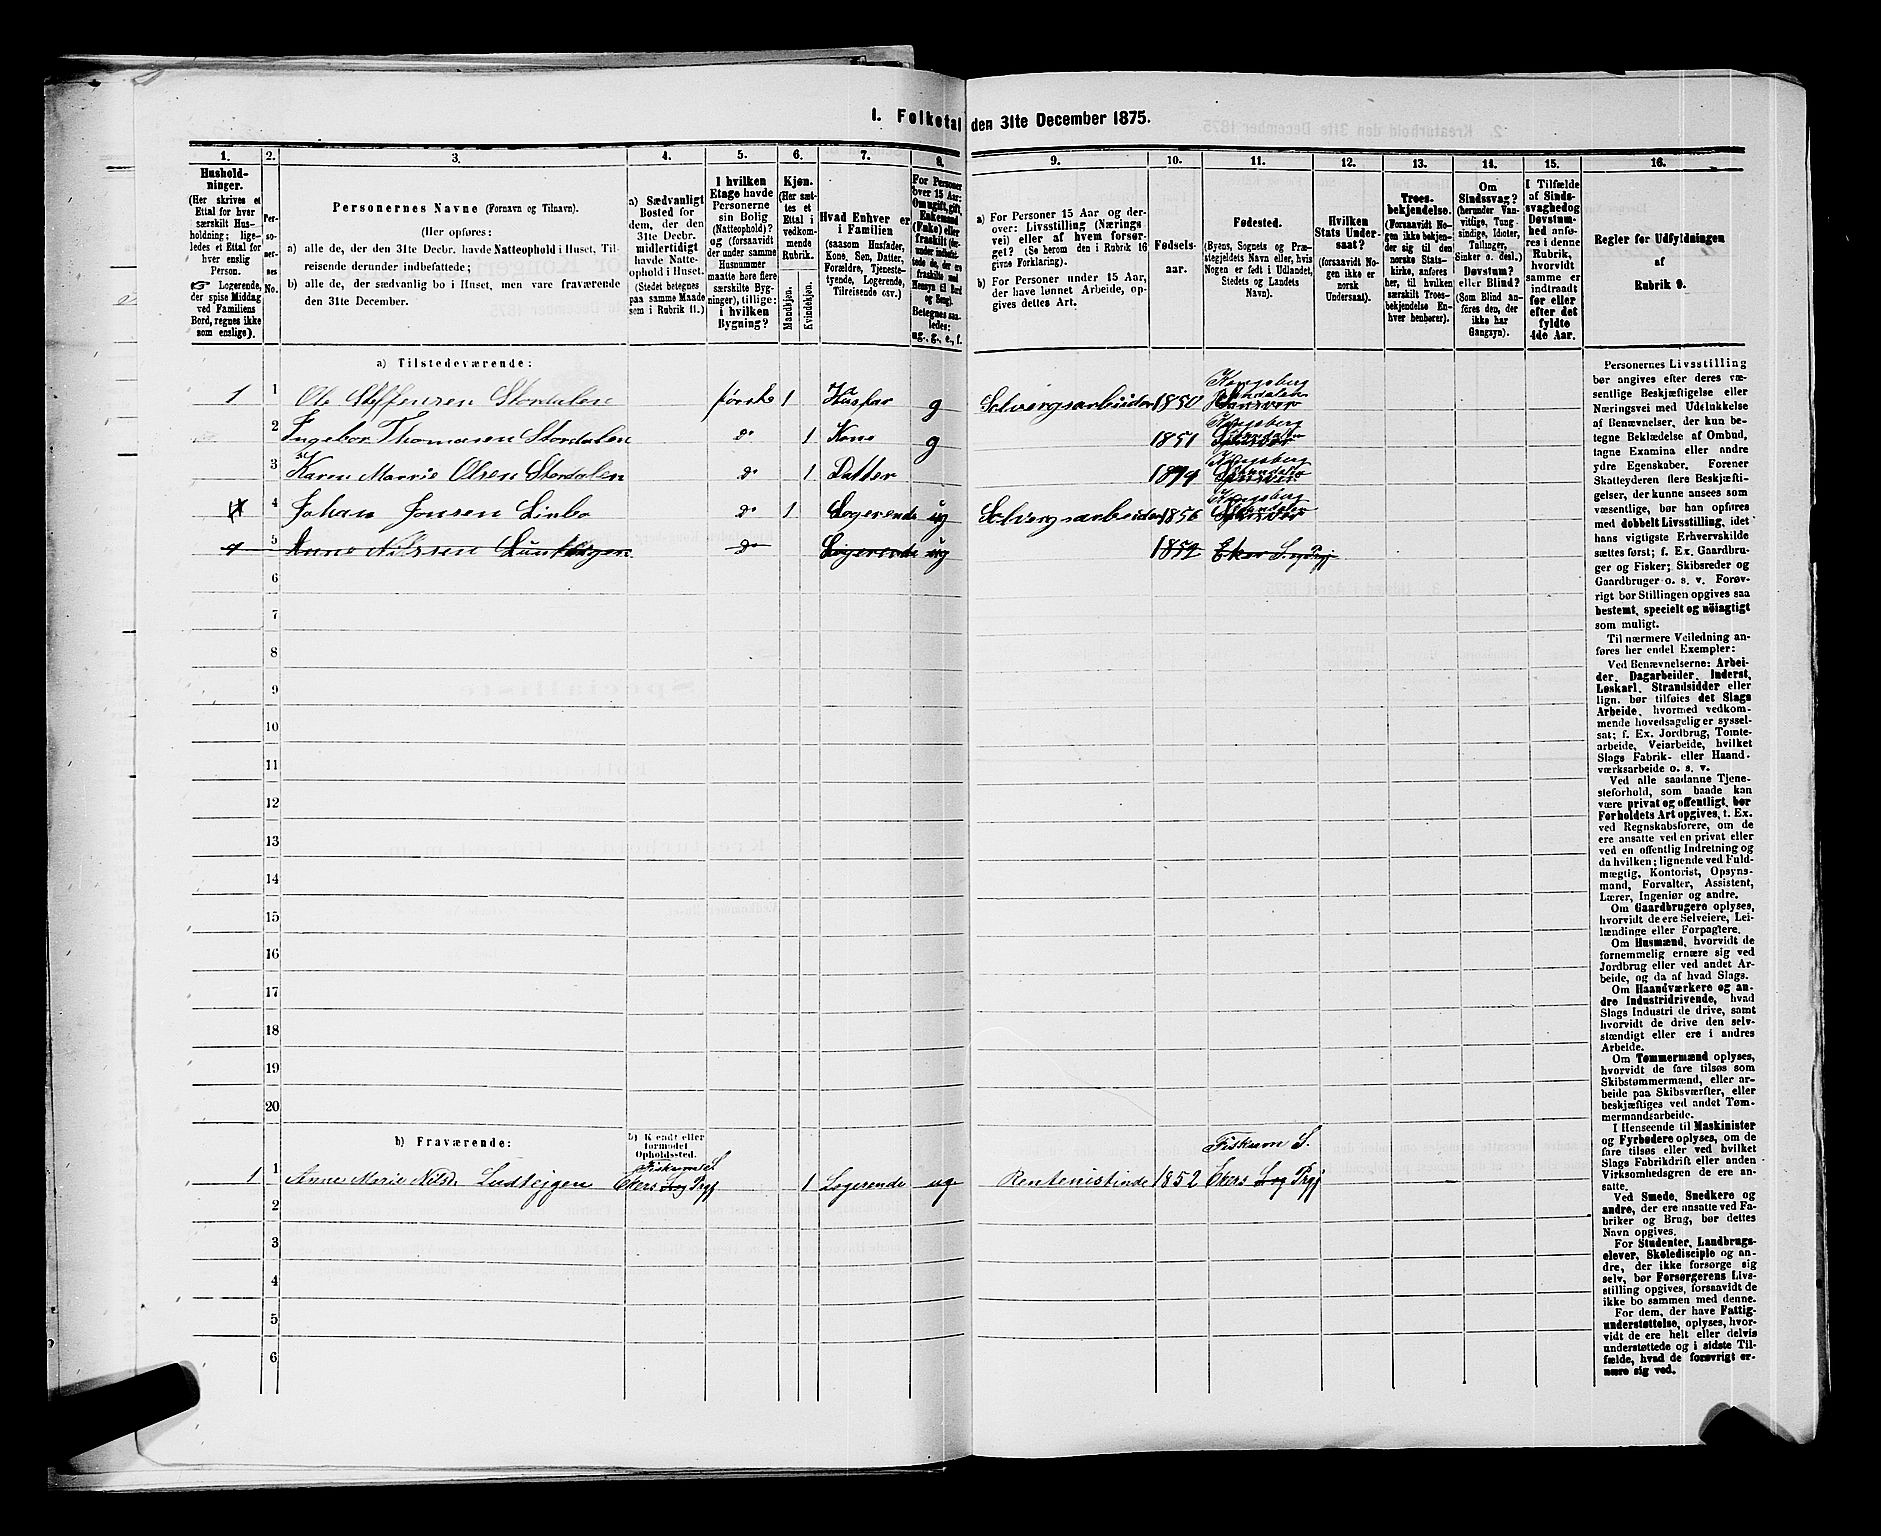 1. Folketal den 31te December 1875.
1. 2. 3. 4. 5. 6. 7. 8. 9. 10. 11. 12. 13. 14. 15. 16.
Hushold-
ninger.
(Her skrives et
Ettal for hver
særskilt Hus-
holdning; lige-
ledes et Ettal for
hver enslig
Person.
Logerende,
der spise Middag
ved Familiens
Bord, regnes ikke
som enslige).
Per-
so-
ner-
nes
No.
Personernes Navne (Fornavn og Tilnavn).
(Her opføres:
a) alle de, der den 31te Decbr. havde Natteophold i Huset, Til-
reisende derunder indbefattede;
b) alle de, der sædvanlig bo i Huset, men vare fraværende
den 31te December.
a) Sædvanligt
Bosted for
dem, der den
31te Decbr.
midlertidigt
havde Natte-
ophold i Huset.
(Stedet betegnes
paa samme Maade
som i Rubrik 11.)
I hvilken
Etage havde
Personerne
sin Bolig
(Natteophold)?
og (forsaavidt
der under samme
Husnummer
maatte høre flere
særskilte Byg-
ninger), tillige:
i hvilken
Bygning?
Kjøn.
(Her sæt-
tes et
Ettal i
vedkom-
mende
Rubrik.
Mandkjøn.
Kvindekjøn.
Hvad Enhver er
i Familien
(saasom Husfader,
Kone, Søn, Datter,
Forældre, Tjeneste-
tyende, Logerende,
Tilreisende osv.)
For Personer
over 15 Aar:
Om ugift, gift,
Enkemand
(Enke) eller
fraskilt
Betegnes saa-
ledes:
ug., g., e., f.
a) For Personer 15 Aar og der-
over: Livsstilling (Nærings
vei) eller af hvem forsør-
get? (Se herom den i Rubrik 16
givne Forklaring).
b) For Personer under 15 Aar,
der have lønnet Arbeide, op-
gives dettes Art.
Fødsels-
aar.
Fødested.
(Byens, Sognets og Præ-
stegjeldets Navn eller, hvis
Nogen er født i Udlandet,
Stedets og Landets
Navn).
Hvilken
Stats Under-
saat?
(forsaavidt No-
gen ikke er
norsk
Undersaat).
Troes-
bekjendelse.
(Forsaavidt No-
gen ikke bekjen-
der sig til den
norske Stats-
kirke, anføres
her, til hvilken
særskilt Troes-
bekjendelse En-
hver henhører).
Om
Sindssvag?
(herunder Van-
vittige, Tung-
sindige, Idioter,
Tullinger,
Sinker o. desl.)
Døvstum?
eller Blind?
(Som Blind an-
føres den, der
ikke har
Gangsyn).
I Tilfælde
af Sinds-
svaghed og
Døvstum-
hed anfø-
res i denne
Rubrik,
hvorvidt
samme er
indtraadt
før eller
efter det
fyldte
4de Aar.
Regler for Udfyldningen
af
Rubrik 9.
a) Tilstedeværende:
1 1 Ole Steffensen Stordalen første 1 Husfar g Sølvergsarbeider 1850 Kongsberg
2 Ingebor Thomasen Stordalen do 1 Kone g 1851 Kongsberg
3 Karen Marrie Olsen Stordalen do 1 Datter 1874 Kongsberg
4 Johan Jonsen Linbo do 1 Logerende ug Sølvergsarbeider 1856 Kongsberg
1 5 Anne Nilssen do Logerende ug 1852 Eker S. og Prgj
6
7
8
9
10
11
12
13
14
15
16
17
18
19
20
b) Fraværende:
b) Kjendt eller
formodet
Opholdssted.
Fiskum S. Fiskum S.
1 1 Anne Marie Nilsn Ludteigen Ekers Sog Prgj 1 Logerende ug Rentenistinde 1852 Ekers Sog Prgj
2
3
4
5
6
Personernes Livsstilling
bør angives efter deres væ-
sentlige Beskjæftigelse eller
Næringsvei med Udelukkelse
af Benævnelser, der kun be-
tegne Beklædelse af Ombud,
tagne Examina eller andre
ydre Egenskaber. Forener
Skatteyderen flere Beskjæfti-
gelser, der kunne ansees som
væsentlige, bør han opføres
med dobbelt Livsstilling, idet
hans vigtigste Erhvervskilde
sættes først; f. Ex. Gaardbru-
ger og Fisker; Skibsreder og
Gaardbruger o. s. v. Forøv-
rigt bør Stillingen opgives saa
bestemt, specielt og nöiagtigt
som muligt.
Til nærmere Veiledning an-
føres her endel Exempler:
Ved Benævnelserne: Arbei-
der, Dagarbeider, Inderst,
Løskarl, Strandsidder eller
lign. bør tilføies det Slags
Arbeide, hvormed vedkom-
mende hovedsagelig er syssel-
sat; f. Ex. Jordbrug, Tomte-
arbeide, Veiarbeide, hvilket
Slags Fabrik- eller Haand-
værksarbeide o. s. v.
Ved alle saadanne Tjene-
steforhold, som baade kan
være privat og offentligt, bør
Forholdets Art opgives, t. Ex.
ved Regnskabsførere, om de
ere ansatte ved en privat eller
ved en offentlig Indretning og
da hvilken; lignende ved Fuld-
mægtig, Kontorist, Opsyns-
mand, Forvalter, Assistent,
Lærer, Ingeniør og andre.
Om Gaardbrugere oplyses,
hvorvidt de ere Selveiere, Lei-
lændinge eller Forpagtere.
Om Husmænd, hvorvidt de
fornemmelig ernære sig ved
Jordbrug eller ved andet Ar-
beide, og da af hvad Slags.
Om Haandværkere og an-
dre Industridrivende, hvad
Slags Industri de drive, samt
hvorvidt de drive den selv-
stændigt eller ere i andres
Arbeide.
Om Tømmermænd oplyses,
hvorvidt de fare tilsøs som
Skibstømmermænd, eller ar-
beide paa Skibsværfter, eller
beskjæftiges ved andet Tøm-
mermandsarbeide.
I Henseende til Maskinister
og Fyrbødere oplyses, om de
fare tilsøs eller ved hvilket
Slags Fabrikdrift eller anden
Virksomhedsgren de ere an-
satte.
Ved Smede, Snedkere og
andre, der ere ansatte ved Fa-
briker og Brug, bør dettes
Navn opgives.
For Studenter, Landbrugs-
elever, Skoledisciple og an-
dre, der ikke forsørge sig
selv, bør Forsørgerens Livs-
stilling opgives, forsaavidt de
ikke bo sammen med denne.
For dem, der have Fattig-
understøttelse, oplyses, hvor-
vidt de ere helt eller delvis
understøttede og i sidste Til-
fælde, hvad de forøvrigt er-
nære sig ved.